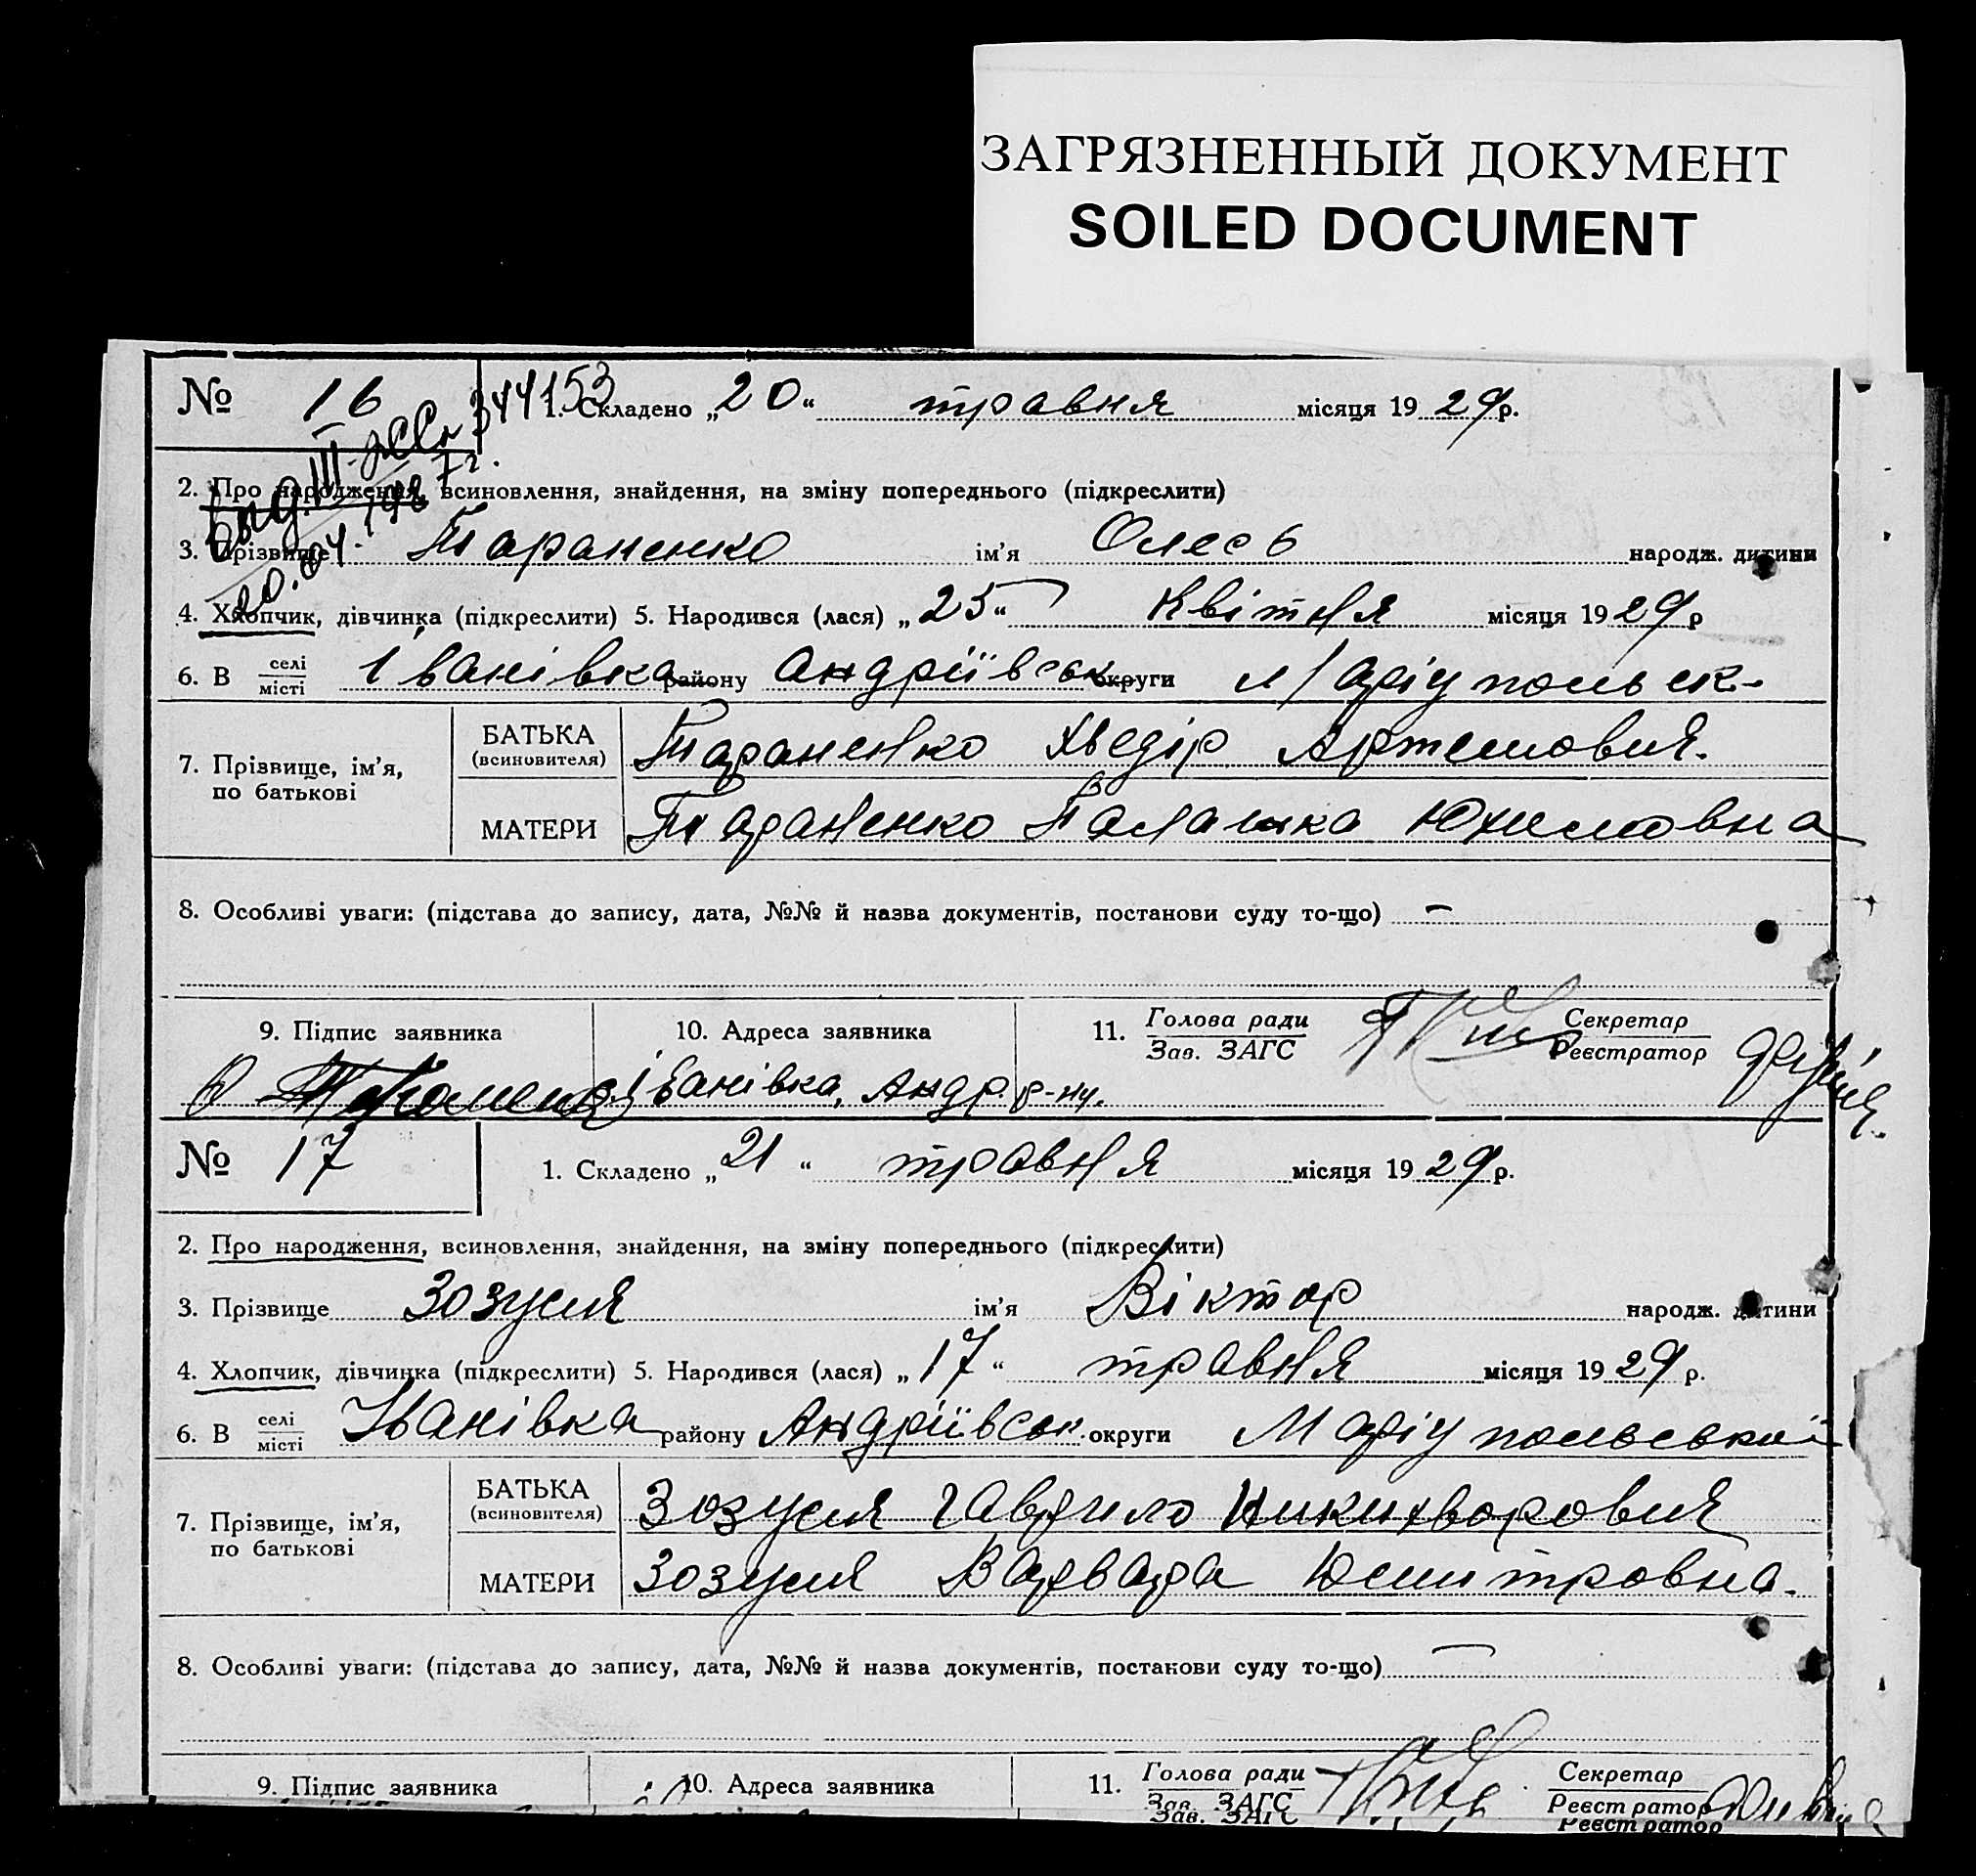 ЗАГРЯЗНЕННЫЙ ДОКУМЕНТ
SOILED DOCUMENT
№ 16 344153 1. Складено „20“ травня місяця 1929р.
2. Про народження, всиновлення, знайдення, на зміну попереднього (підкреслити)
3. Прізвище Тараненко ім'я Олесь народж. дитини
4. Хлопчик, дівчинка (підкреслити) 5. Народився (лася) „25“ Квітня місяця 1929р
6. В селі/місті Іванівка району Андріївськ округи Маріупольск.
7. Прізвище, ім'я, по батькові
БАТЬКА (всиновителя) Тараненко Хведір Артемович.
МАТЕРИ Тараненко Палашка Юхимовна
8. Особливі уваги: (підстава до запису, дата, №№ й назва документів, постанови суду то-що) –
9. Підпис заявника 10. Адреса заявника 11. Голова ради/Зав. ЗАГС Секретар/Реєстратор
Іванівка, Андр. р-ну.
№ 17 1. Складено „21“ травня місяця 1929р.
2. Про народження, всиновлення, знайдення, на зміну попереднього (підкреслити)
3. Прізвище Зозуля ім'я Віктор народж. дитини
4. Хлопчик, дівчинка (підкреслити) 5. Народився (лася) „17“ травня місяця 1929р.
6. В селі/місті Іванівка району Андріївськ. округи Маріупольської
7. Прізвище, ім'я, по батькові
БАТЬКА (всиновителя) Зозуля Гаврило Никихворович
МАТЕРИ Зозуля Варвара Юмитровна.
8. Особливі уваги: (підстава до запису, дата, №№ й назва документів, постанови суду то-що) –
9. Підпис заявника 10. Адреса заявника 11. Голова ради/Зав. ЗАГС Секретар/Реєстратор
Зав. ЗАГС Реєстратор